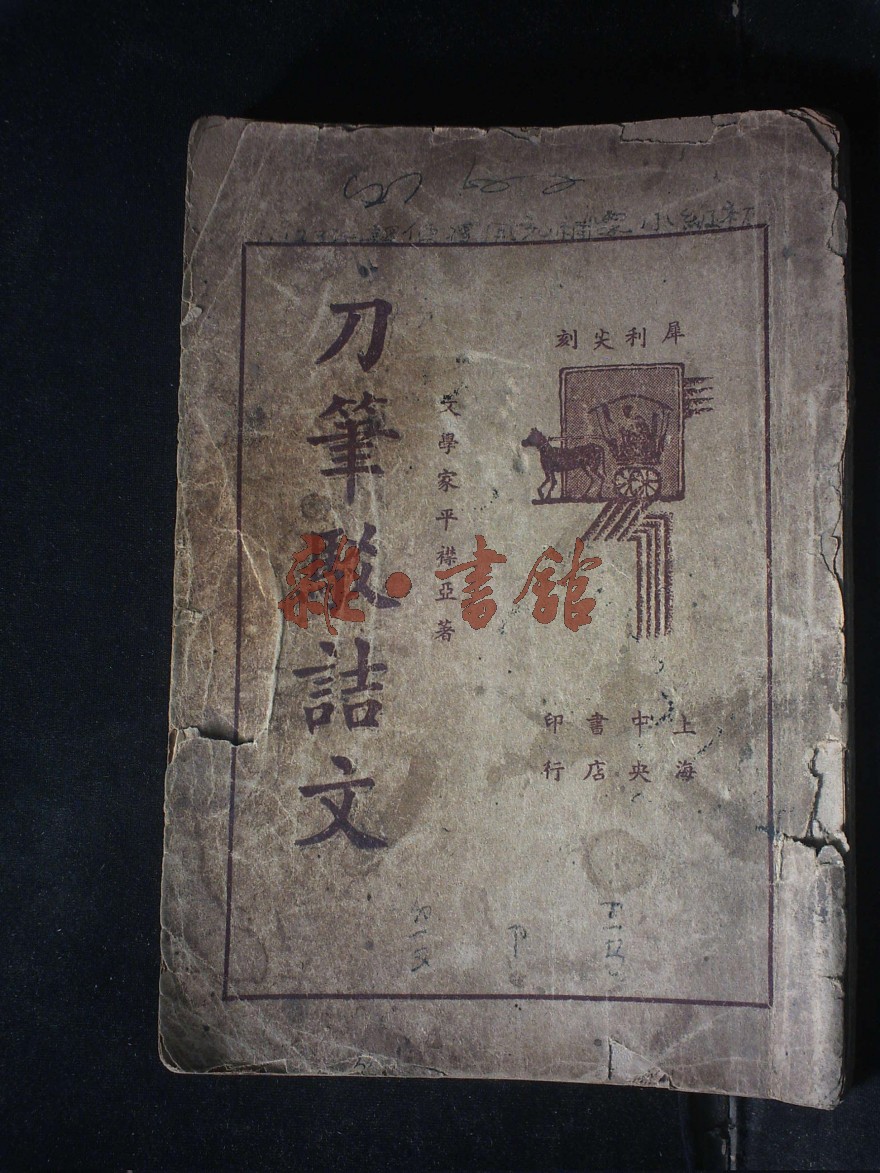 犀利尖刻
文學家平襟亞著
刀筆駁詰文
上海
中央
書店
印行
雜·書館